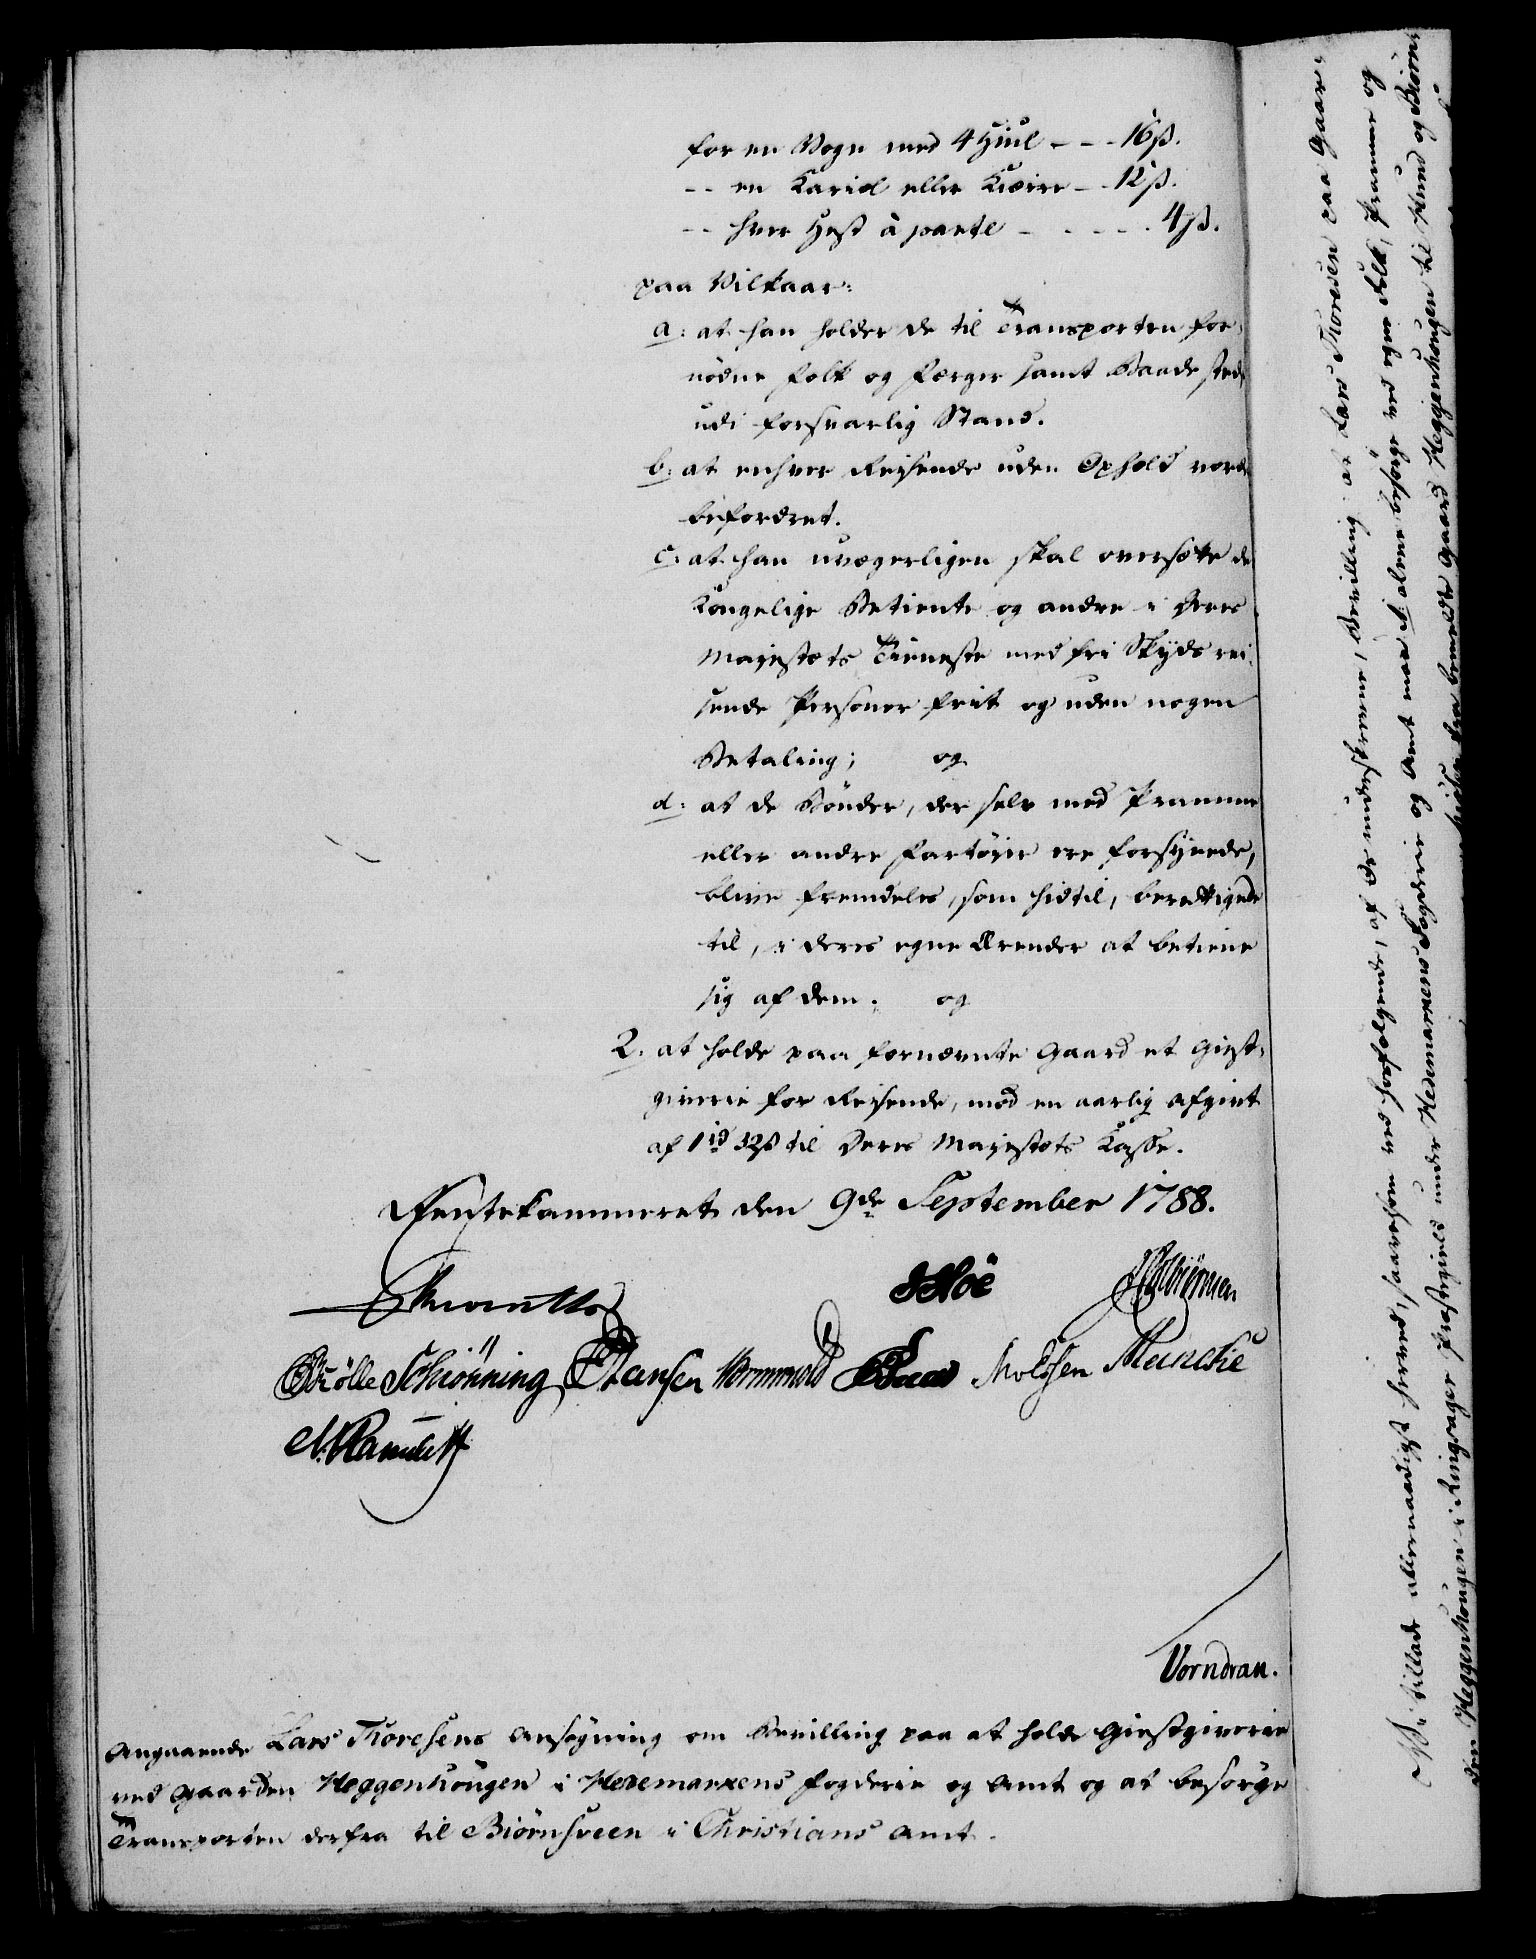 for en Vogn med 4 Hjul - - - 16 ß.
-- en Kariol eller Kiærre - - 12 ß.
-- hver Hest à parte - - - - - 4 ß.
paa Vilkaar:
a: at han holder de til Transporten for-
nødne Folk og Færger samt Baade stedse
udi forsvarlig Stand.
b: at enhver Reisende uden Ophold vorde
befordret.
c: at han uvægerligen skal oversætte de
Kongelige Betiente og andre i Deres
Majestæts Tieneste med fri Skyds rei-
sende Personer frit og uden nogen
Betaling; og
d: at de Bønder, der selv med Pramme
eller andre Fartøier ere forsynede,
blive fremdeles, som hidtil, berettigede
til, i deres egne Ærender at betiene
sig af dem; og
2. at holde paa fornævnte Gaard et Giest-
giverie for Reisende, mod en aarlig Afgivt
af 1 rd 32 ß til Deres Majestæts Kasse.
Rentekammeret den 9de September 1788.
Hoë
Schiönning Hansen Wormvold Moldsen Meincke
Vorndran.
Angaaende Lars Thoresens Ansøgning om Bevilling paa at holde Giestgiverie
ved Gaarden Heggenhougen i Hedemarkens Fogderie og Amt og at besørge
Transporten derfra til Biørnsveen i Christians Amt.
Vi tillade allernaadigst herved, saavelsom ved hosfølgende, af Os underskrevne, Bevilling at Lars Thoresen paa Gaar-
den Heggenhougen i Ringsager Præstegield under Hedemarkens Fogderie og Amt maa 1. alene besørge med egne Folk, Pramme og
fra bemeldte Gaard Heggenhougen til Hund og Biørn-